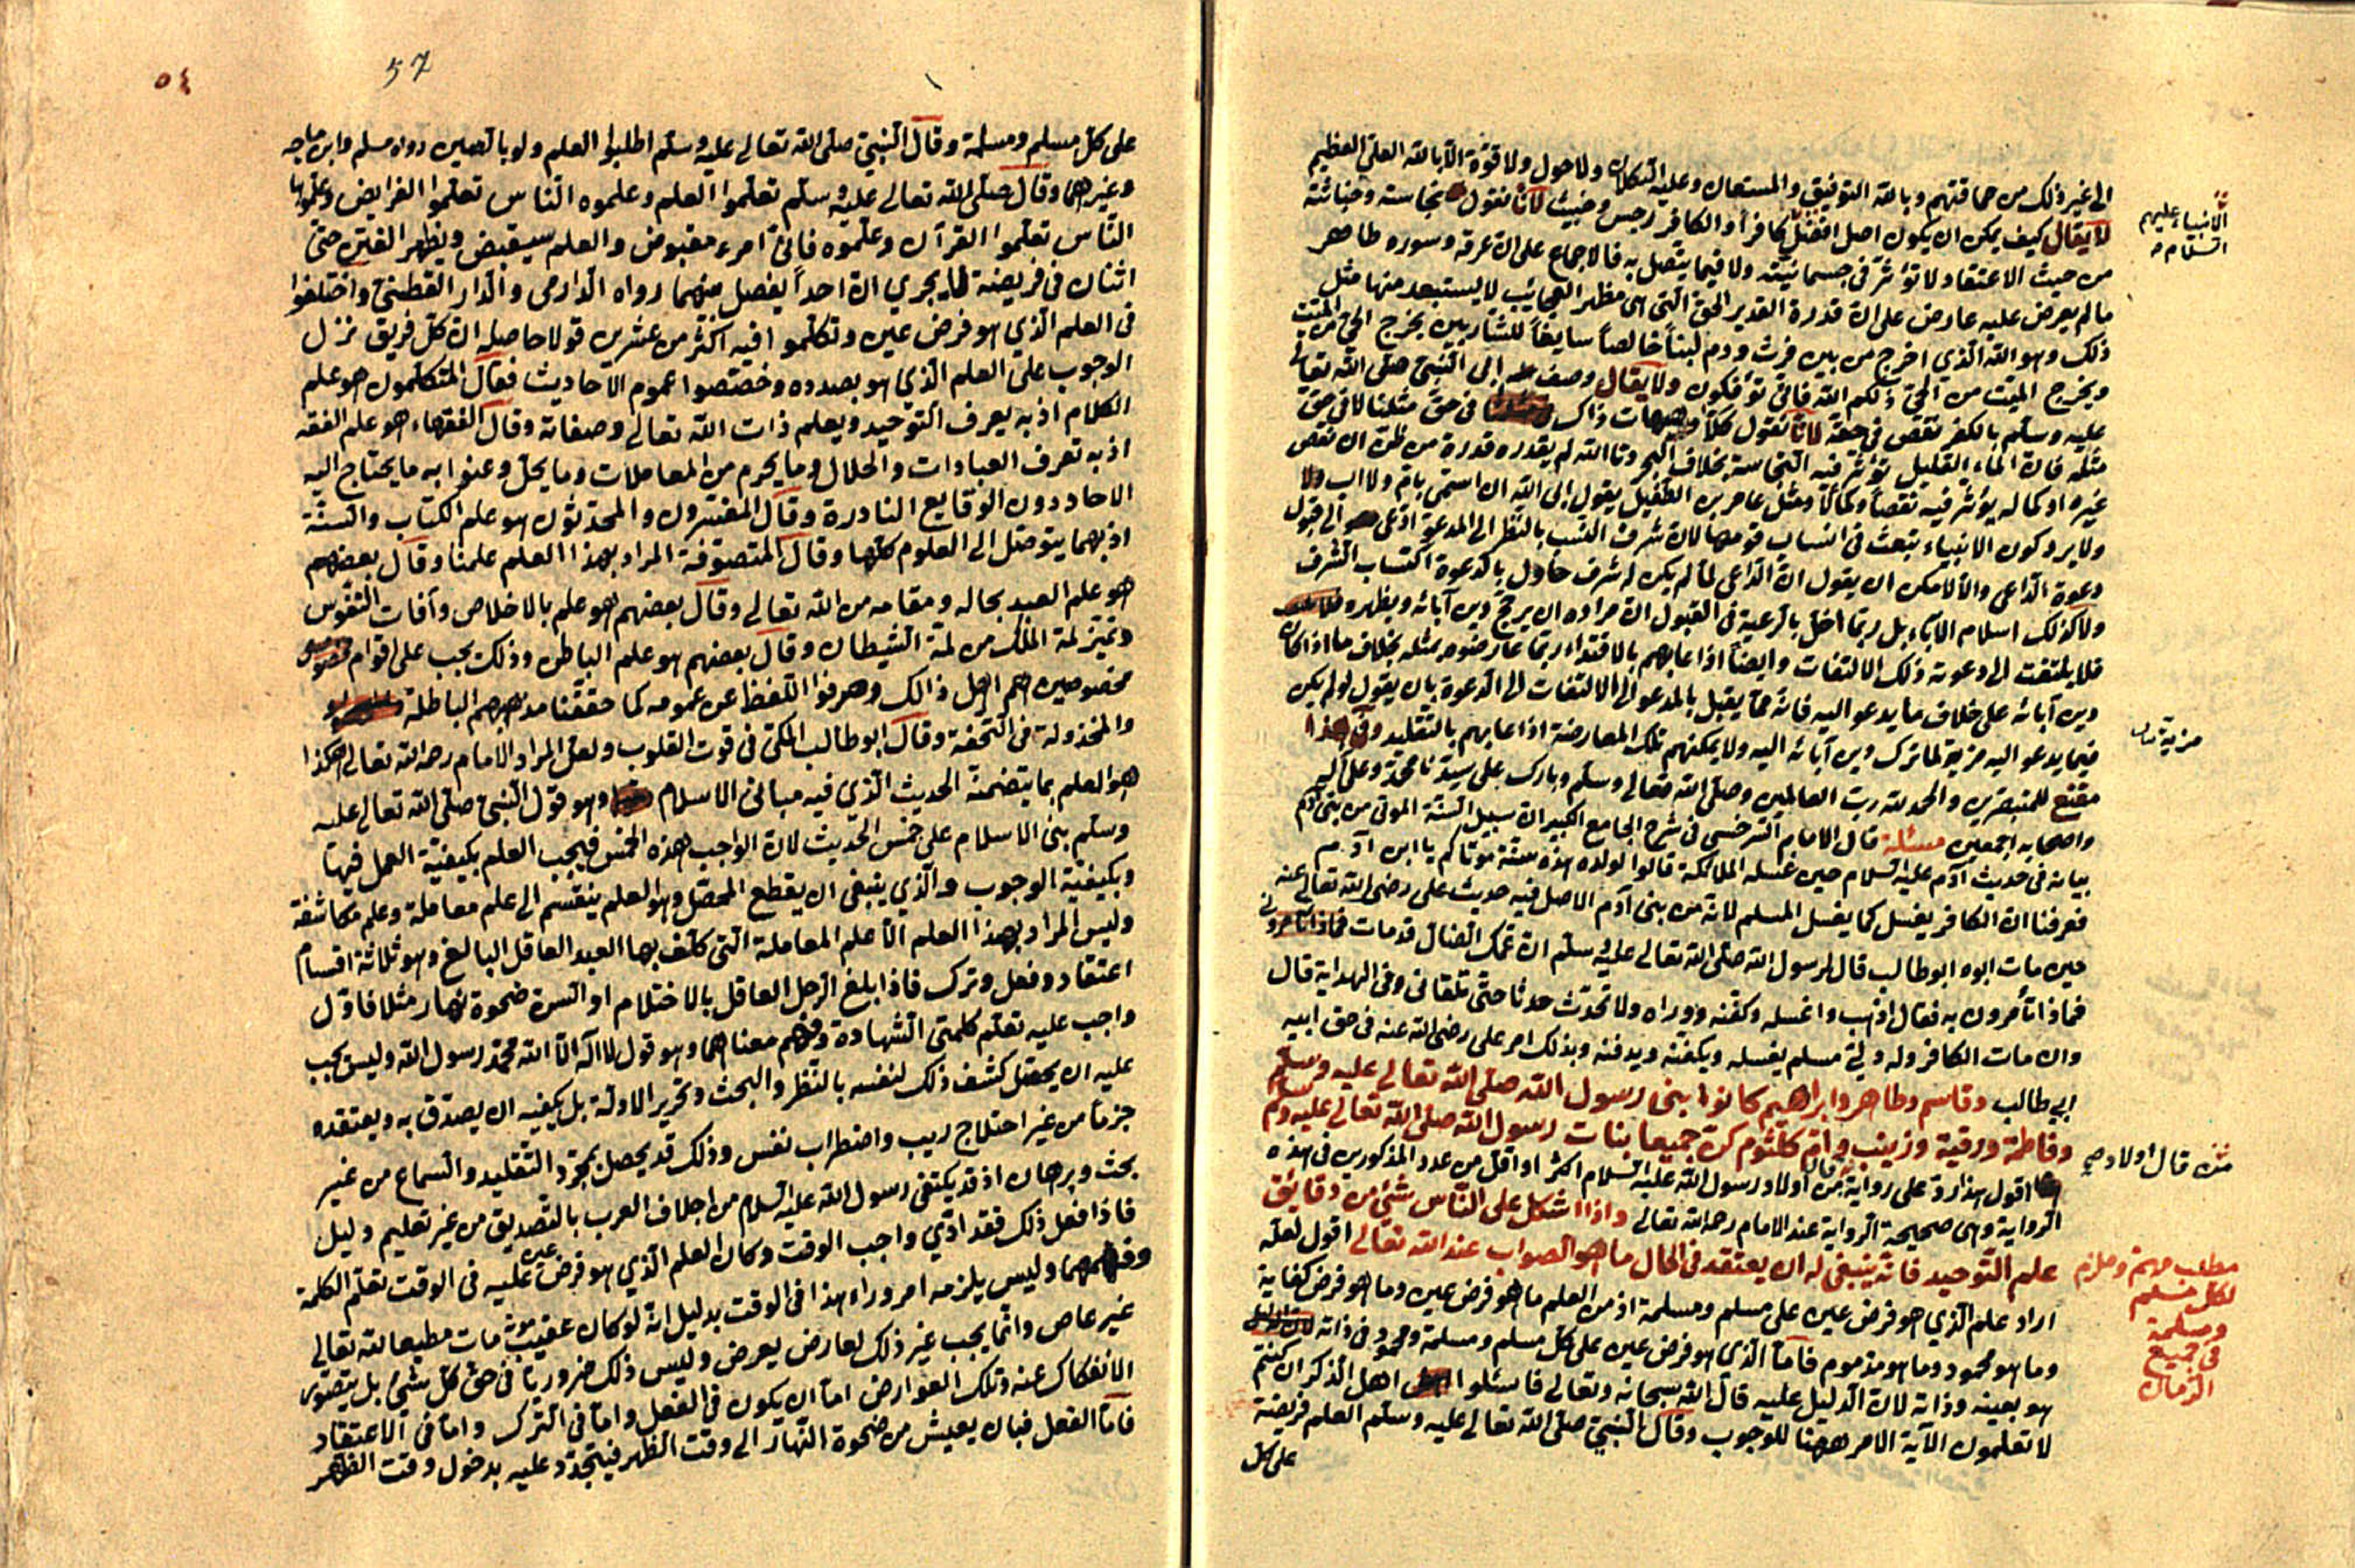 الى غير ذلك من حماقتهم وبالله التوفيق والمستعان وعليه التكلان ولا حول ولا قوة الا بالله العلي العظيم
لا يقال كيف يمكن ان يكون اصل افضل كافرا والكافر رجس وخبيث لانا نقول نجاسته وخباثته
الانبياء عليهم
السلام
من حيث الاعتقاد لا تؤثر في جسمانيته ولا فيما يتصل به فالاجماع على ان عرقه وسوره طاهر
ما لم يعرض عليه عارض على ان قدرة القدير الحق التي هي مظهر العجائب لا يستبعد منها مثل
ذلك وهو الله الذي اخرج من بين فرث ودم لبنا خالصا سايغا للشاربين يخرج الحي من الميت
ويخرج الميت من الحي ذلكم الله فانى تؤفكون ولا يقال وصف ابي النبي صلى الله تعالى
عليه وسلم بالكفر نقص في حقه لانا نقول كلا وهيهات ذاك في حق مثلنا لا في حق
مثله فان الماء القليل تؤثر فيه النجاسة بخلاف البحر وتالله لم يقدره قدره من ظن ان نقص
غيره او كماله يؤثر فيه نقصا وكمالا ومثل عامر بن الطفيل يقول ابى الله ان اسمى بام ولا اب
ولا يرد كون الانبياء تبعث في انساب قومها لان شرف النسب بالنظر الى المدعو ادعى الى قبول
دعوة الداعي والا لامكن ان يقول ان الداعي لما لم يكن له شرف حاول بالدعوة اكتساب الشرف
ولا كذلك اسلام الاباء بل ربما اخل بالرعية في القبول ان مراده ان يرجح دين آبائه ويظهره
فلا يلتفت الى دعوته ذلك الالتفات وايضا اذا عابهم بالاقتداء ربما عارضوه بمثله بخلاف ما اذا كان
دين آبائه على خلاف ما يدعو اليه فانه مما يقبل بالمدعو الى الالتفات الى الدعوة بان يقول لو لم يكن
فيما يدعو اليه مزية لما ترك دين آبائه اليه ولا يمكنهم تلك المعارضة اذا عابهم بالتقليد وفي هذا
مزية
مقنع للمتبصرين والحمد لله رب العالمين وصلى الله تعالى وسلم وبارك على سيدنا محمد وعلى آله
واصحابه اجمعين مسئلة قال الامام السرخسي في شرح الجامع الكبير ان سبيل السنة الموتى من بني آدم
بيانه في حديث آدم عليه السلام حين غسله الملائكة قالوا لولده هذه سنة موتاكم يا ابن آدم
فعرفنا ان الكافر يغسل كما يغسل المسلم لانه من بني آدم الاصل فيه حديث علي رضي الله تعالى عنه
حين مات ابوه ابو طالب قال لرسول الله صلى الله تعالى عليه وسلم ان عمك الضال قد مات
فماذا تأمرون به فقال اذهب واغسله وكفنه وواراه ولا تحدث حدثا حتى تلقاني وفي الهداية قال
وان مات الكافر وله ولي مسلم يغسله ويكفنه ويدفنه وبذلك امر علي رضي الله عنه في حق ابيه
ابي طالب وقاسم وطاهر وابراهيم كانوا بني رسول الله صلى الله تعالى عليه وسلم
وفاطمة ورقية وزينب وام كلثوم كن جميعا بنات رسول الله صلى الله تعالى عليه وسلم
اقول هذا رد على رواية من قال اولاد رسول الله عليه السلام اكثر او اقل من عدد المذكورين في هذه
الرواية وهي صحيحة الرواية عند الامام رحمه الله تعالى واذا اشكل على الناس شئ من دقائق
علم التوحيد فانه ينبغي له ان يعتقد في الحال ما هو الصواب عند الله تعالى اقول لعله
مطلب مهم وملزم
لكل مسلم
ومسلمة
في جميع
الزمان
اراد علم الذي هو فرض عين على مسلم ومسلمة اذ من العلم ما هو فرض عين وما هو فرض كفاية
وما هو محمود وما هو مذموم فاما الذي هو فرض عين على كل مسلم ومسلمة ومحمود في ذاته
هو بعينه وذاته لان الدليل عليه قال الله سبحانه وتعالى فاسئلوا اهل الذكر ان كنتم
لا تعلمون الآية الامر ههنا للوجوب وقال النبي صلى الله تعالى عليه وسلم العلم فريضة
على كل
٥٤
57
على كل مسلم ومسلمة وقال النبي صلى الله تعالى عليه وسلم اطلبوا العلم ولو بالصين رواه مسلم وابن ماجه
وغيرهما وقال صلى الله تعالى عليه وسلم تعلموا العلم وعلموه الناس تعلموا الفرايض وعلموها
الناس تعلموا القرآن وعلموه فاني امرء مقبوض والعلم سيقبض ويظهر الفتن حتى
اثنان في فريضة لا يجري ان احدا يفصل بينهما رواه الدارمي والدار القطني واختلفوا
في العلم الذي هو فرض عين وتكلموا فيه اكثر من عشرين قولا حاصله ان كل فريق نزل
الوجوب على العلم الذي هو بصدده وخصصوا عموم الاحاديث فقال المتكلمون هو علم
الكلام اذ به يعرف التوحيد ويعلم ذات الله تعالى وصفاته وقال الفقهاء هو علم الفقه
اذ به تعرف العبادات والحلال وما يحرم من المعاملات وما يحل وعنوا به ما يحتاج اليه
الاحاد دون الوقايع النادرة وقال المفسرون والمحدثون هو علم الكتاب والسنة
اذ بهما يتوصل الى العلوم كلها وقال المتصوفة المراد بهذا العلم علمنا وقال بعضهم
هو علم العبد بحاله ومقامه من الله تعالى وقال بعضهم هو علم بالاخلاص وآفات النفوس
وتميز لمة الملك من لمة الشيطان وقال بعضهم هو علم الباطن وذلك يجب على اقوام
مخصوصين هم اهل ذالك وصرفوا اللفظ عن عمومه كما حققنا مذهبهم الباطلة
والمخذولة في التحفة وقال ابو طالب المكي في قوت القلوب ولعل المراد الامام رحمه الله تعالى هكذا
هو العلم بما يتضمنه الحديث الذي فيه مباني الاسلام وهو قول النبي صلى الله تعالى عليه
وسلم بني الاسلام على خمس الحديث لان الواجب هذه الخمس فيجب العلم بكيفية العمل فيها
وبكيفية الوجوب والذي ينبغي ان يقطع المحصل وهو العلم ينقسم الى علم معاملة وعلم مكاشفة
وليس المراد بهذا العلم الا علم المعاملة التي كلف بها العبد العاقل البالغ وهو ثلاثة اقسام
اعتقاد وفعل وترك فاذا بلغ الرجل العاقل بالاختلام او السن ضحوة نهار مثلا فاول
واجب عليه تعلم كلمتي الشهادة وفهم معناهما وهو قول لا اله الا الله محمد رسول الله وليس يجب
عليه ان يحصل كشف ذلك لنفسه بالنظر والبحث وتحرير الادلة بل يكفيه ان يصدق به ويعتقده
جزما من غير احتلاج ريب واضطراب نفس وذلك قد يحصل بمجرد التقليد والسماع من غير
بحث وبرهان اذ قد يكتفي رسول الله عليه السلام من اجلاف العرب بالتصديق من غير تعليم دليل
فاذا فعل ذلك فقد ادى واجب الوقت وكان العلم الذي هو فرض عين عليه في الوقت تعلم الكلمة
وفهمهما وليس يلزمه امر وراء هذا في الوقت بدليل انه لو كان عقيب موته مات مطيعا لله تعالى
غير عاص وانما يجب غير ذلك لعارض يعرض وليس ذلك ضروريا في حق كل شئ بل يتصور
الانفكاك عنه وتلك العوارض اما ان يكون في الفعل واما في الترك واما في الاعتقاد
فاما الفعل فبان يعيش من ضحوة النهار الى وقت الظهر فيتجدد عليه بدخول وقت الظهر